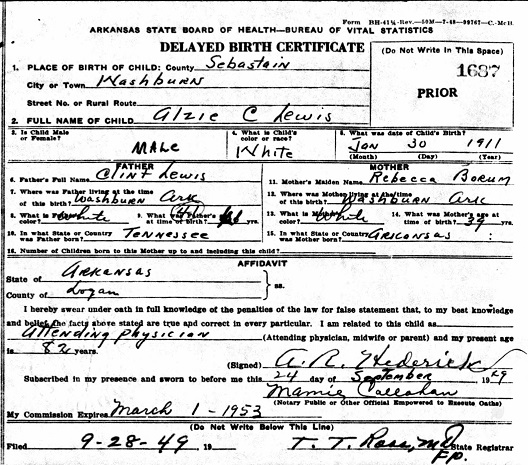 Form BH-41¼-Rev.-50M-7-48-09767-C.-McH.
ARKANSAS STATE BOARD OF HEALTH—BUREAU OF VITAL STATISTICS
DELAYED BIRTH CERTIFICATE
(Do Not Write In This Space)
1687
PRIOR
1. PLACE OF BIRTH OF CHILD: County Sebastain
City or Town Washburn
Street No. or Rural Route
2. FULL NAME OF CHILD Alzie C Lewis
3. Is Child Male or Female? MALE
4. What is Child's color or race? White
5. What was date of Child's Birth? JAN 30 1911
(Month) (Day) (Year)
FATHER
6. Father's Full Name Clint Lewis
7. Where was Father living at the time of this birth? Washburn Ark
8. What is Father's White
9. What was Father's at time of birth? yrs.
10. In what State or Country was Father born? TENNESSEE
MOTHER
11. Mother's Maiden Name Rebecca BORUM
12. Where was Mother living at the time of this birth? Washburn Ark
13. What is White
14. What was Mother's age at time of birth? 39 yrs.
15. In what State or Country was Mother born? ARKANSAS
16. Number of Children born to this Mother up to and including this child?
AFFIDAVIT
State of ARKANSAS
ss.
County of Logan
I hereby swear under oath in full knowledge of the penalties of the law for false statement that, to my best knowledge
and belief, the facts above stated are true and correct in every particular. I am related to this child as
Attending physician (Attending physician, midwife or parent) and my present age
is 82 years.
(Signed) A. R. Hederick
Subscribed in my presence and sworn to before me this 24 day of September, 1949
Mamie Callahan
(Notary Public or Other Official Empowered to Execute Oaths)
My Commission Expires March 1 - 1953
(Do Not Write Below This Line)
Filed 9-28-49, 19 T. T. Ross, MD State Registrar
F.P.